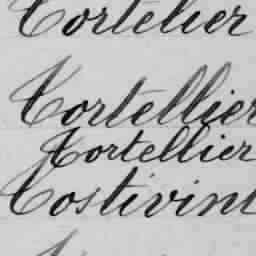 Tortelier
Tortellier
Tortellier
Tostivin